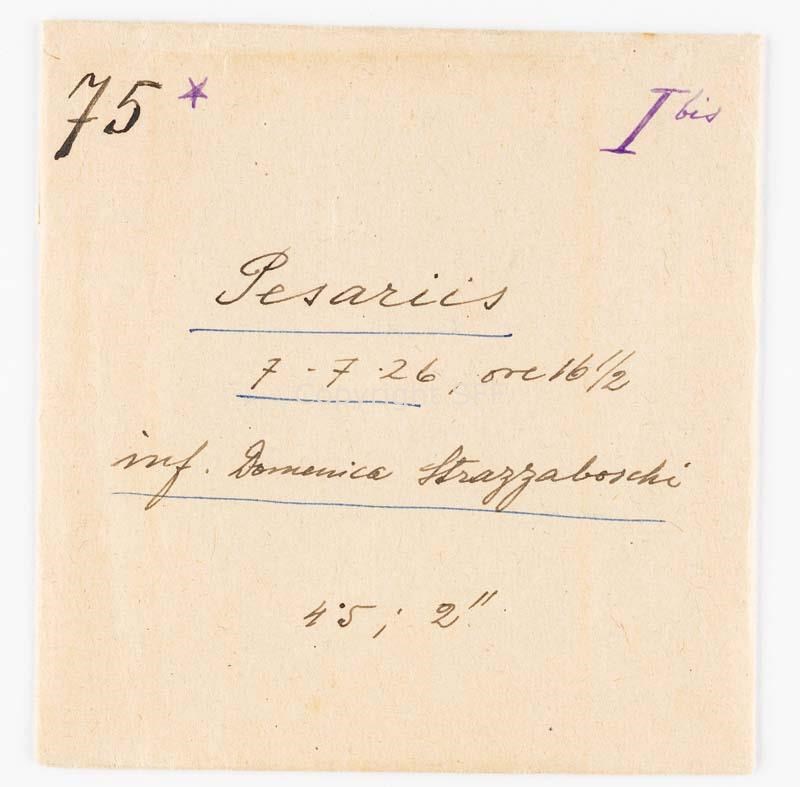 75* I bis
Pesariis
7-7.26, ore 16 1/2
inf. Domenica Strazzaboschi
4.5; 2"